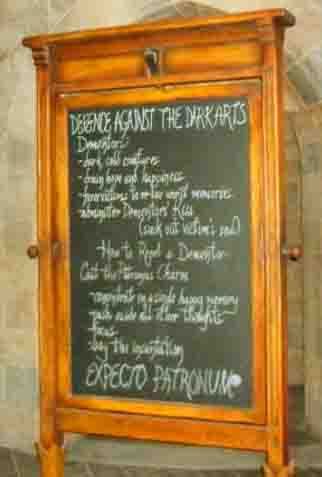 DEFENCE AGAINST THE DARK ARTS
Dementors
-dark cold creatures
-drain hope and happiness
-force victims to relive worst memories
-administer Dementor's Kiss
(suck out victim's soul)
How to Repel a Dementor
Cast the Patronus Charm
-concentrate on a single happy memory
-push aside all other thoughts
-focus
-say the incantation
EXPECTO PATRONUM